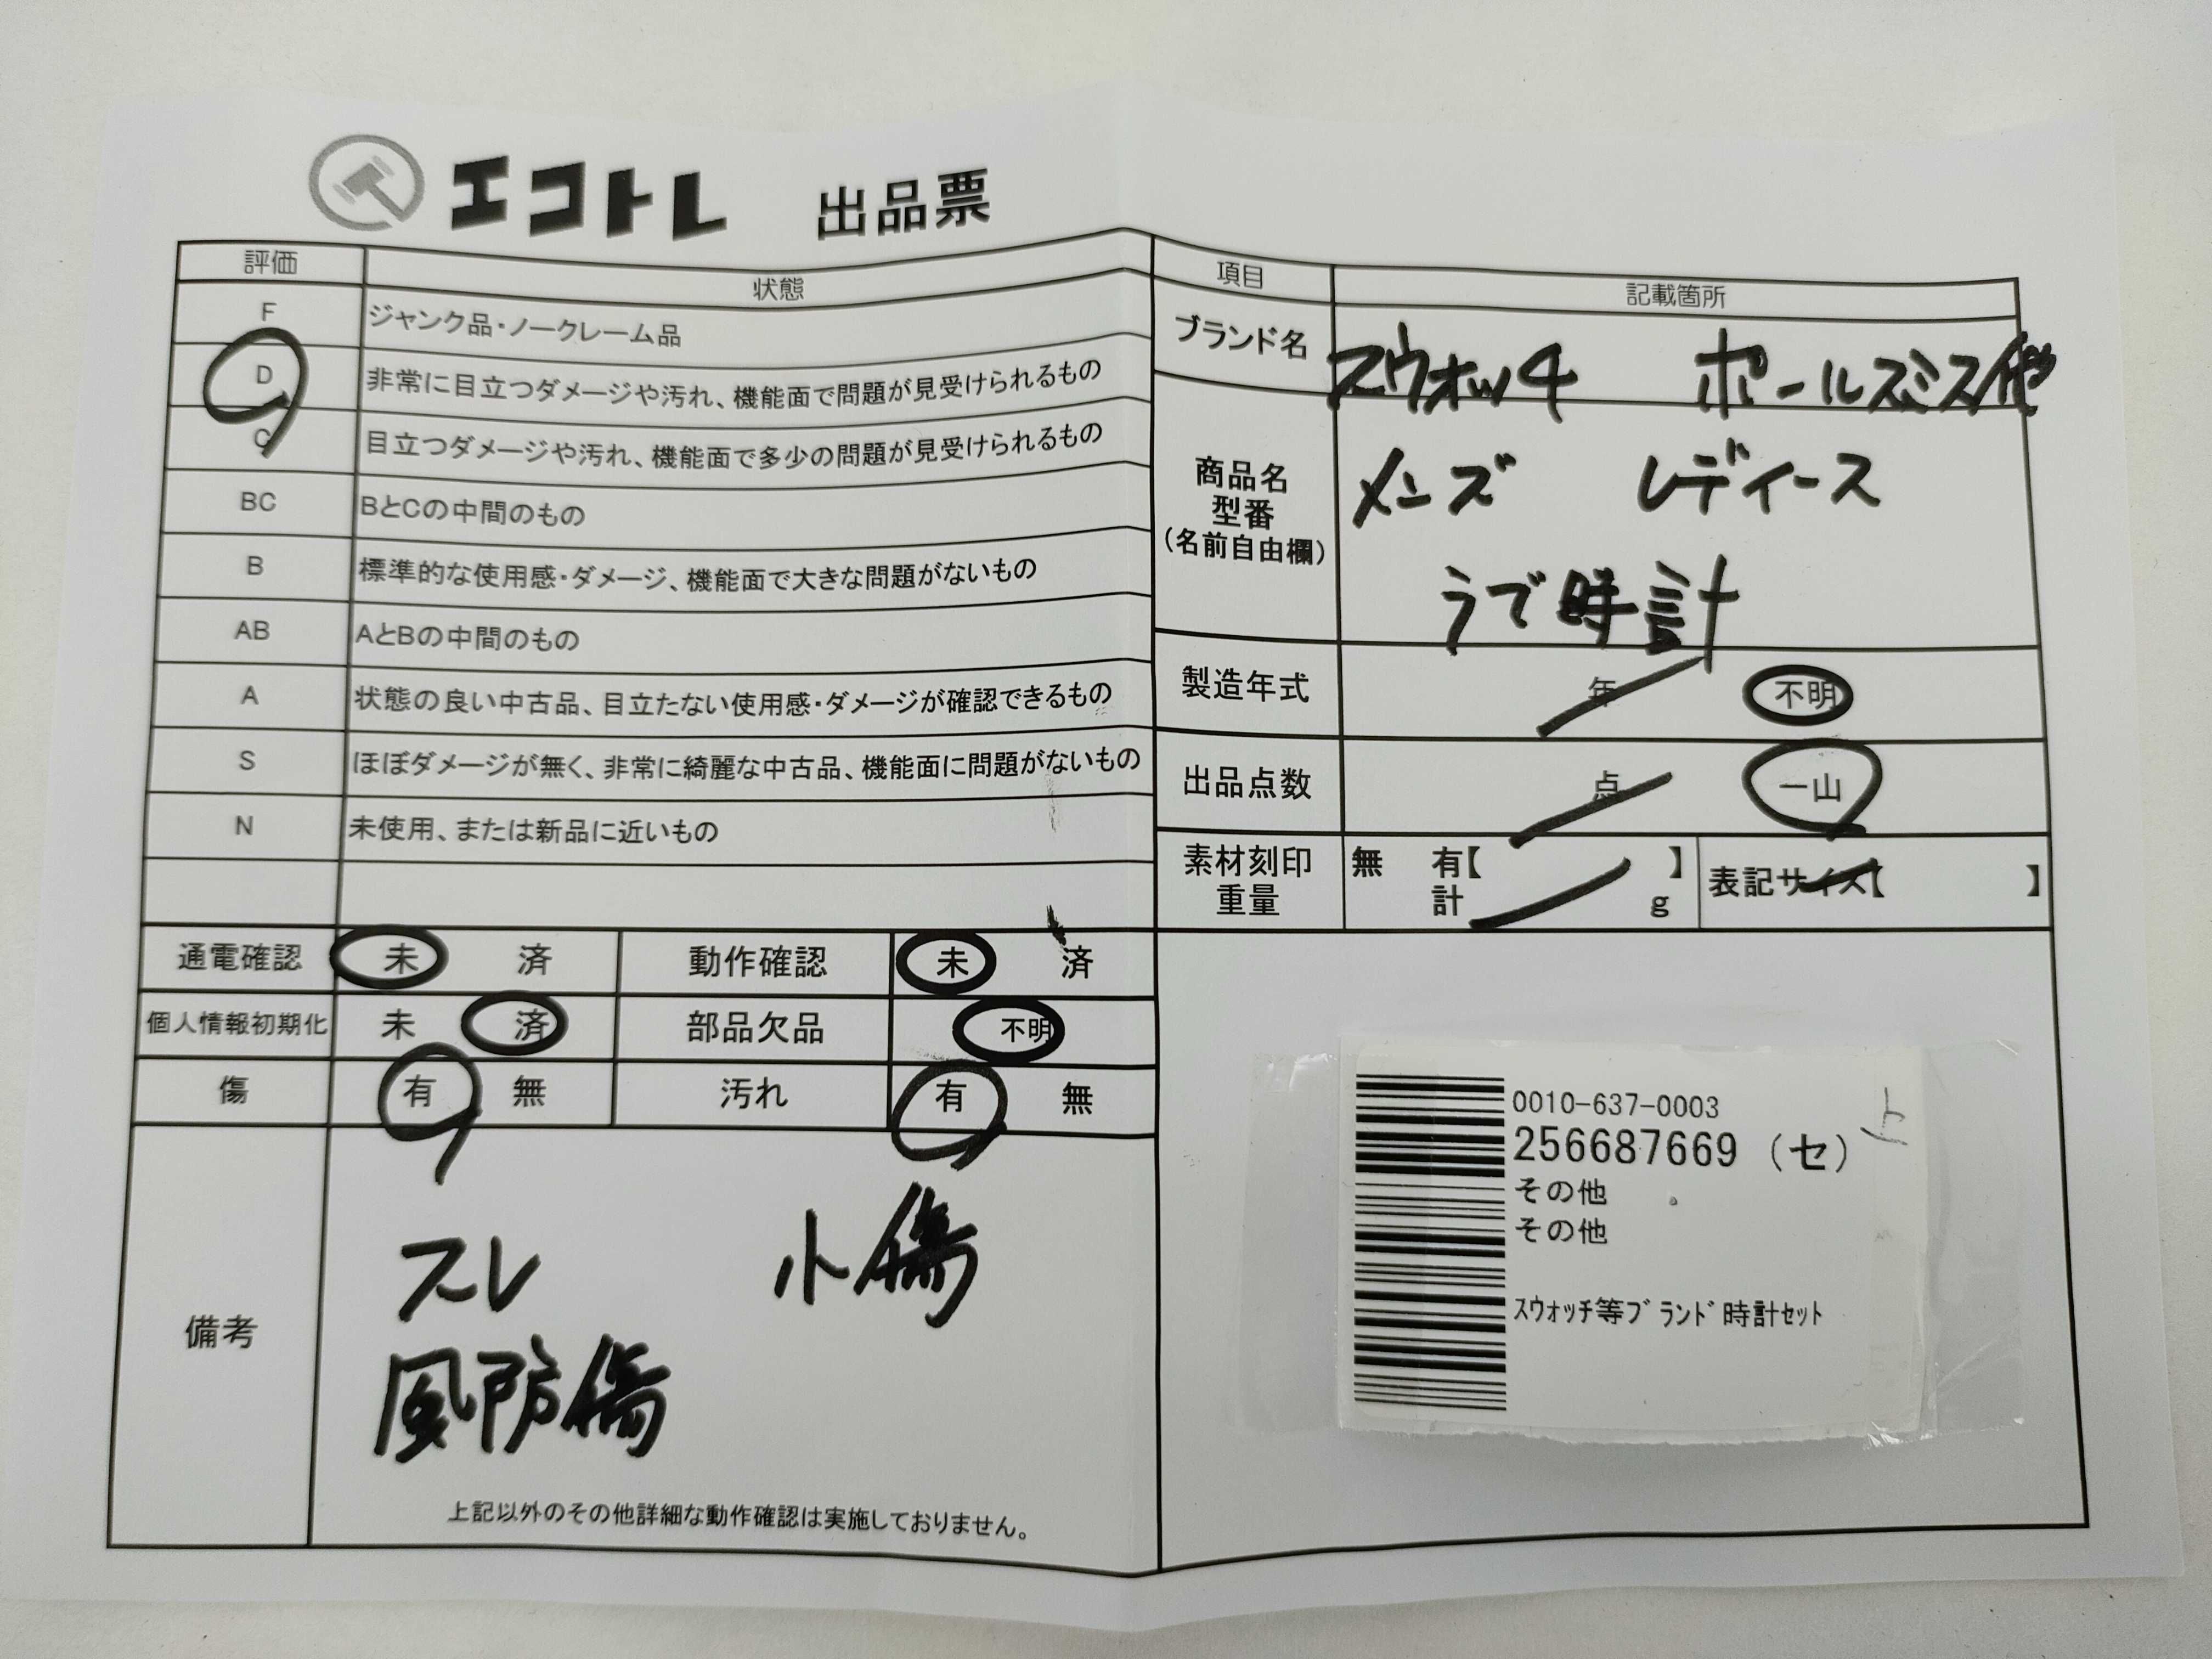 エコトレ 出品票
評価 状態
F ジャンク品・ノークレーム品
D 非常に目立つダメージや汚れ、機能面で問題が見受けられるもの
C 目立つダメージや汚れ、機能面で多少の問題が見受けられるもの
BC BとCの中間のもの
B 標準的な使用感・ダメージ、機能面で大きな問題がないもの
AB AとBの中間のもの
A 状態の良い中古品、目立たない使用感・ダメージが確認できるもの
S ほぼダメージが無く、非常に綺麗な中古品、機能面に問題がないもの
N 未使用、または新品に近いもの
項目 記載箇所
ブランド名 スウォッチ ポールスミス他
商品名
型番
(名前自由欄)
メンズ レディース
うで時計
製造年式 年 不明
出品点数 点 一山
素材刻印
重量
無 有【 】
計 g
表記サイズ【 】
通電確認 未 済 動作確認 未 済
個人情報初期化 未 済 部品欠品 不明
傷 有 無 汚れ 有 無
備考
スレ 小傷
風防傷
上記以外のその他詳細な動作確認は実施しておりません。
0010-637-0003
256687669 (セ)
その他
その他
スウォッチ等ブランド時計セット